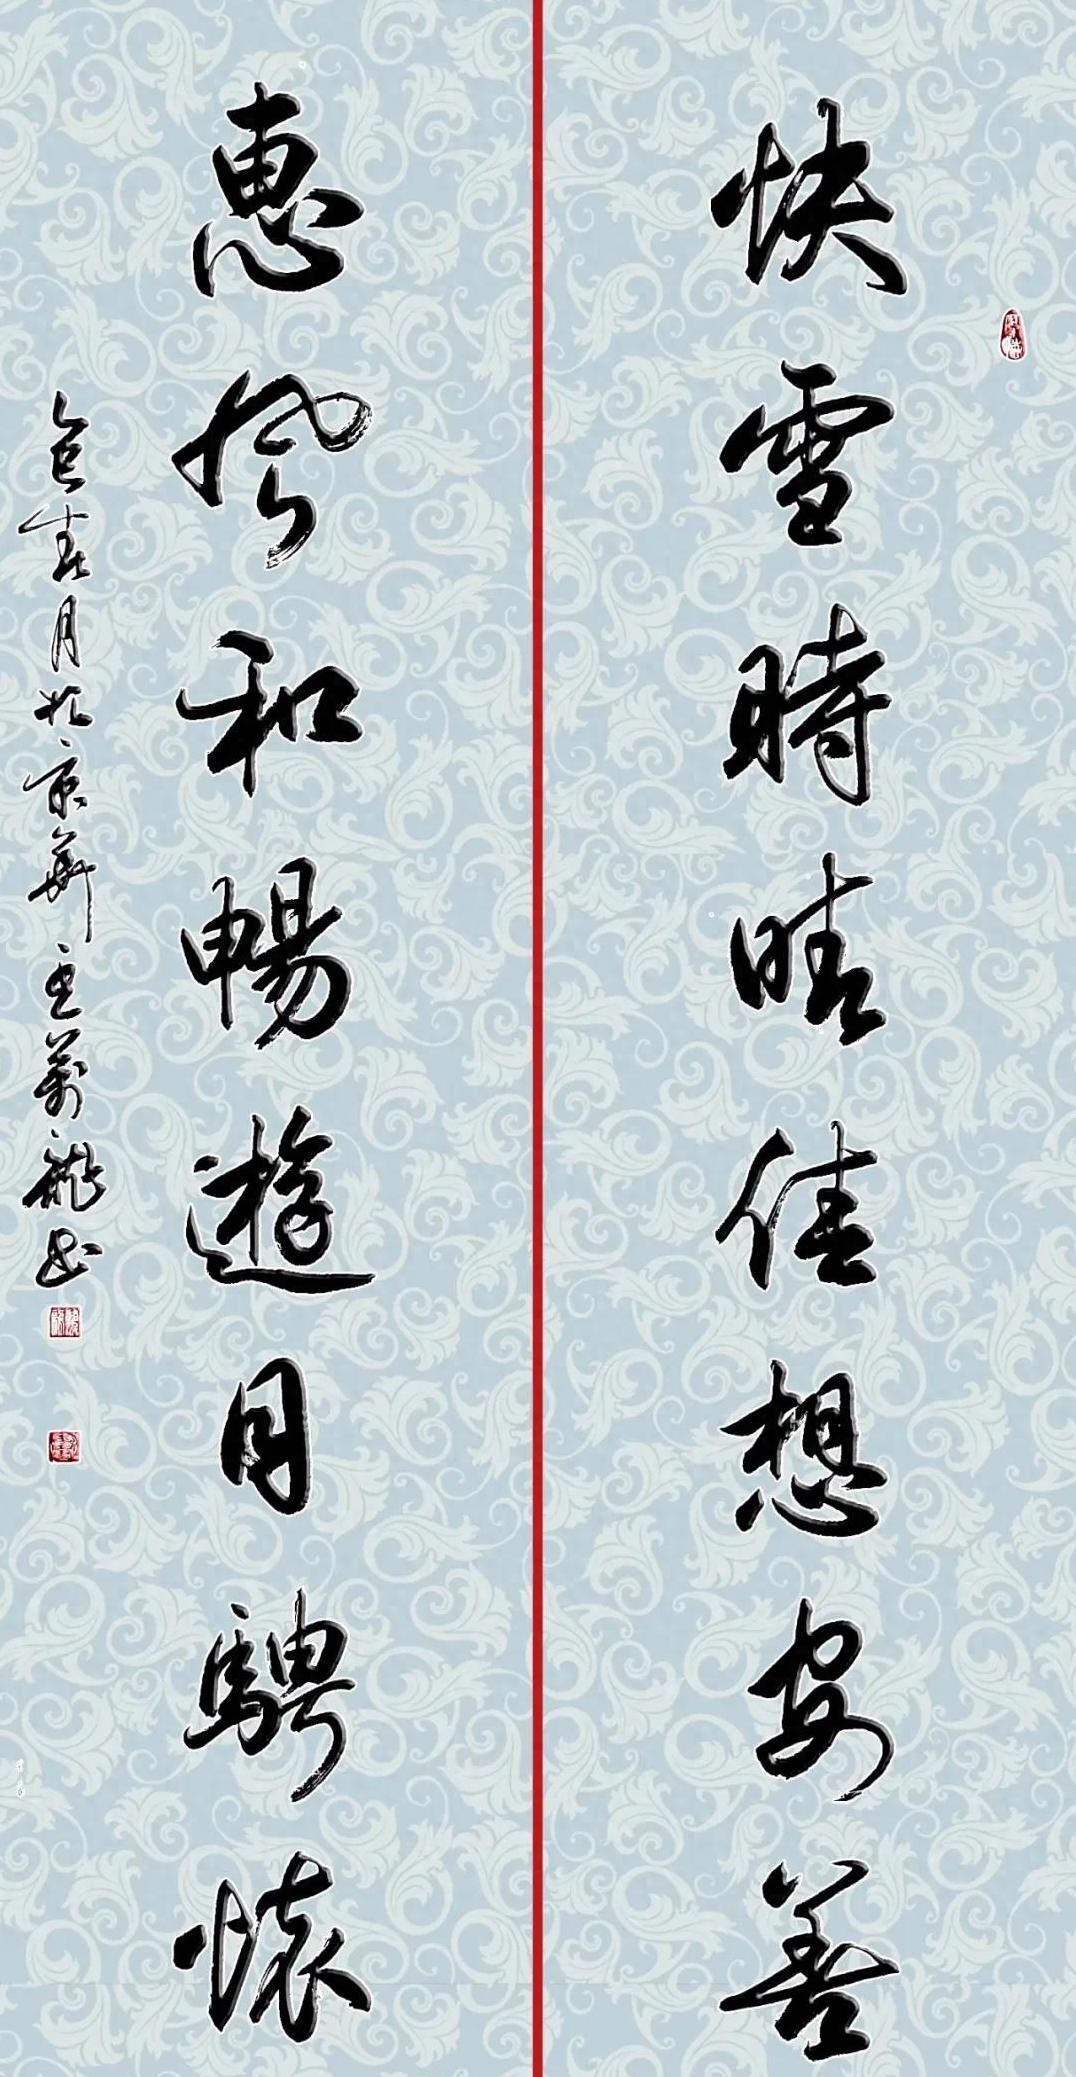 快雪時晴佳想安善
惠風和暢遊目騁懷
春月於京華
萬龍書